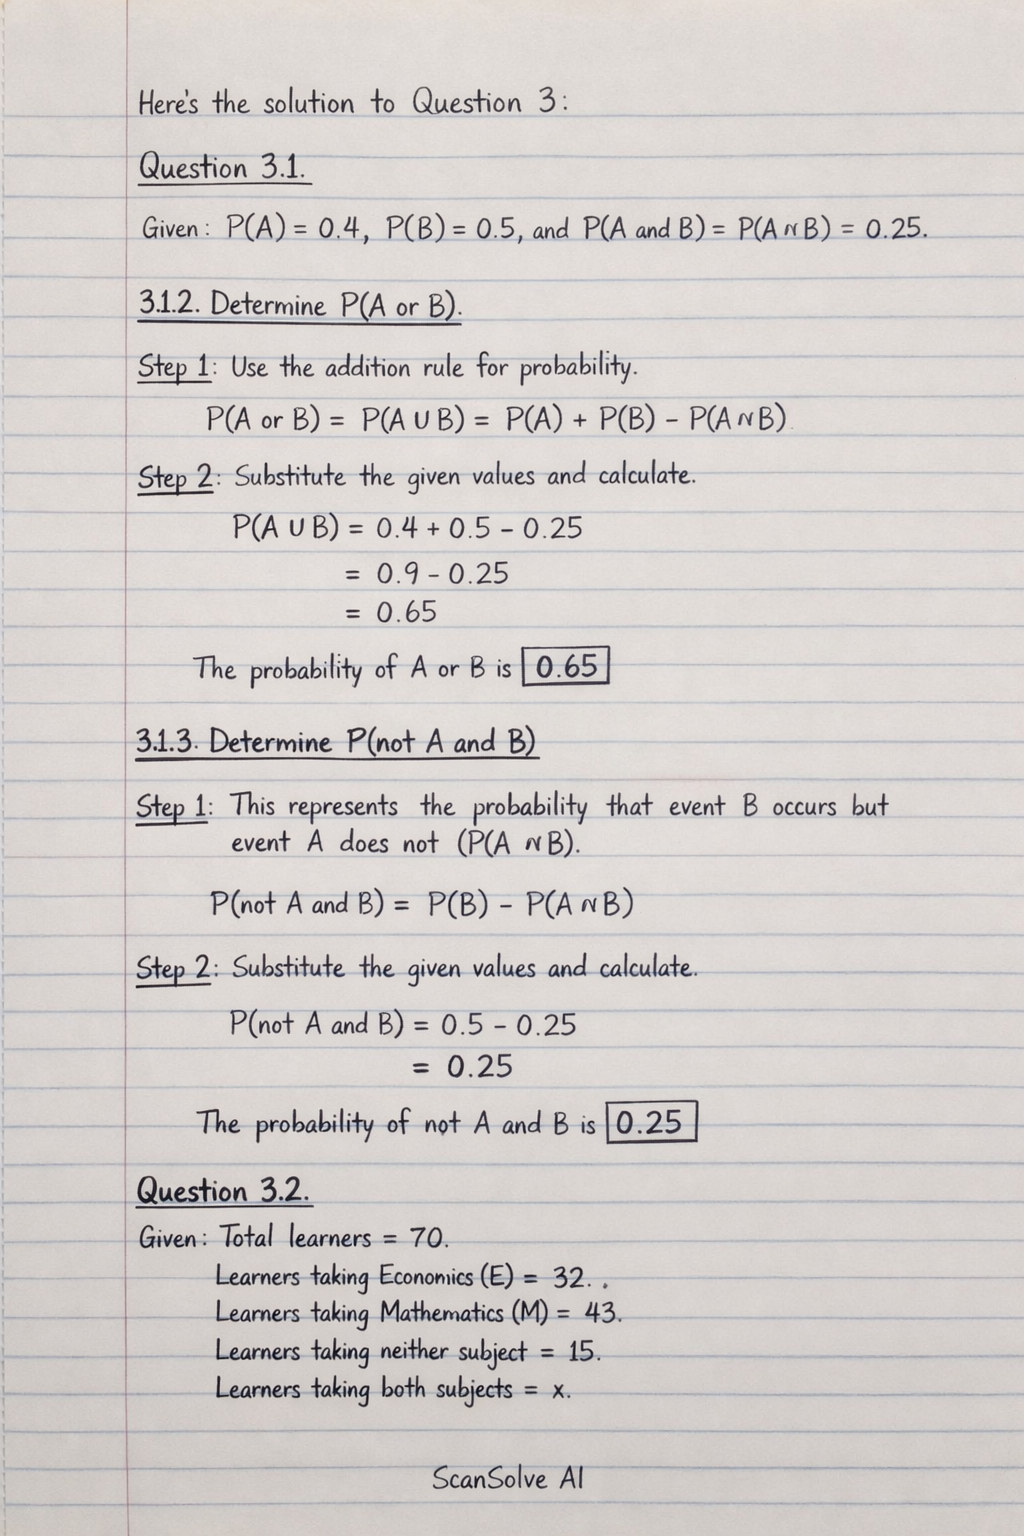 Here's the solution to Question 3:
Question 3.1.
Given: P(A) = 0.4, P(B) = 0.5, and P(A and B) = P(A ∩ B) = 0.25.
3.1.2. Determine P(A or B).
Step 1: Use the addition rule for probability.
P(A or B) = P(A ∪ B) = P(A) + P(B) - P(A ∩ B)
Step 2: Substitute the given values and calculate.
P(A ∪ B) = 0.4 + 0.5 - 0.25
= 0.9 - 0.25
= 0.65
The probability of A or B is 0.65
3.1.3. Determine P(not A and B)
Step 1: This represents the probability that event B occurs but
event A does not (P(A ∩ B).
P(not A and B) = P(B) - P(A ∩ B)
Step 2: Substitute the given values and calculate.
P(not A and B) = 0.5 - 0.25
= 0.25
The probability of not A and B is 0.25
Question 3.2.
Given: Total learners = 70.
Learners taking Economics (E) = 32. .
Learners taking Mathematics (M) = 43.
Learners taking neither subject = 15.
Learners taking both subjects = x.
ScanSolve AI